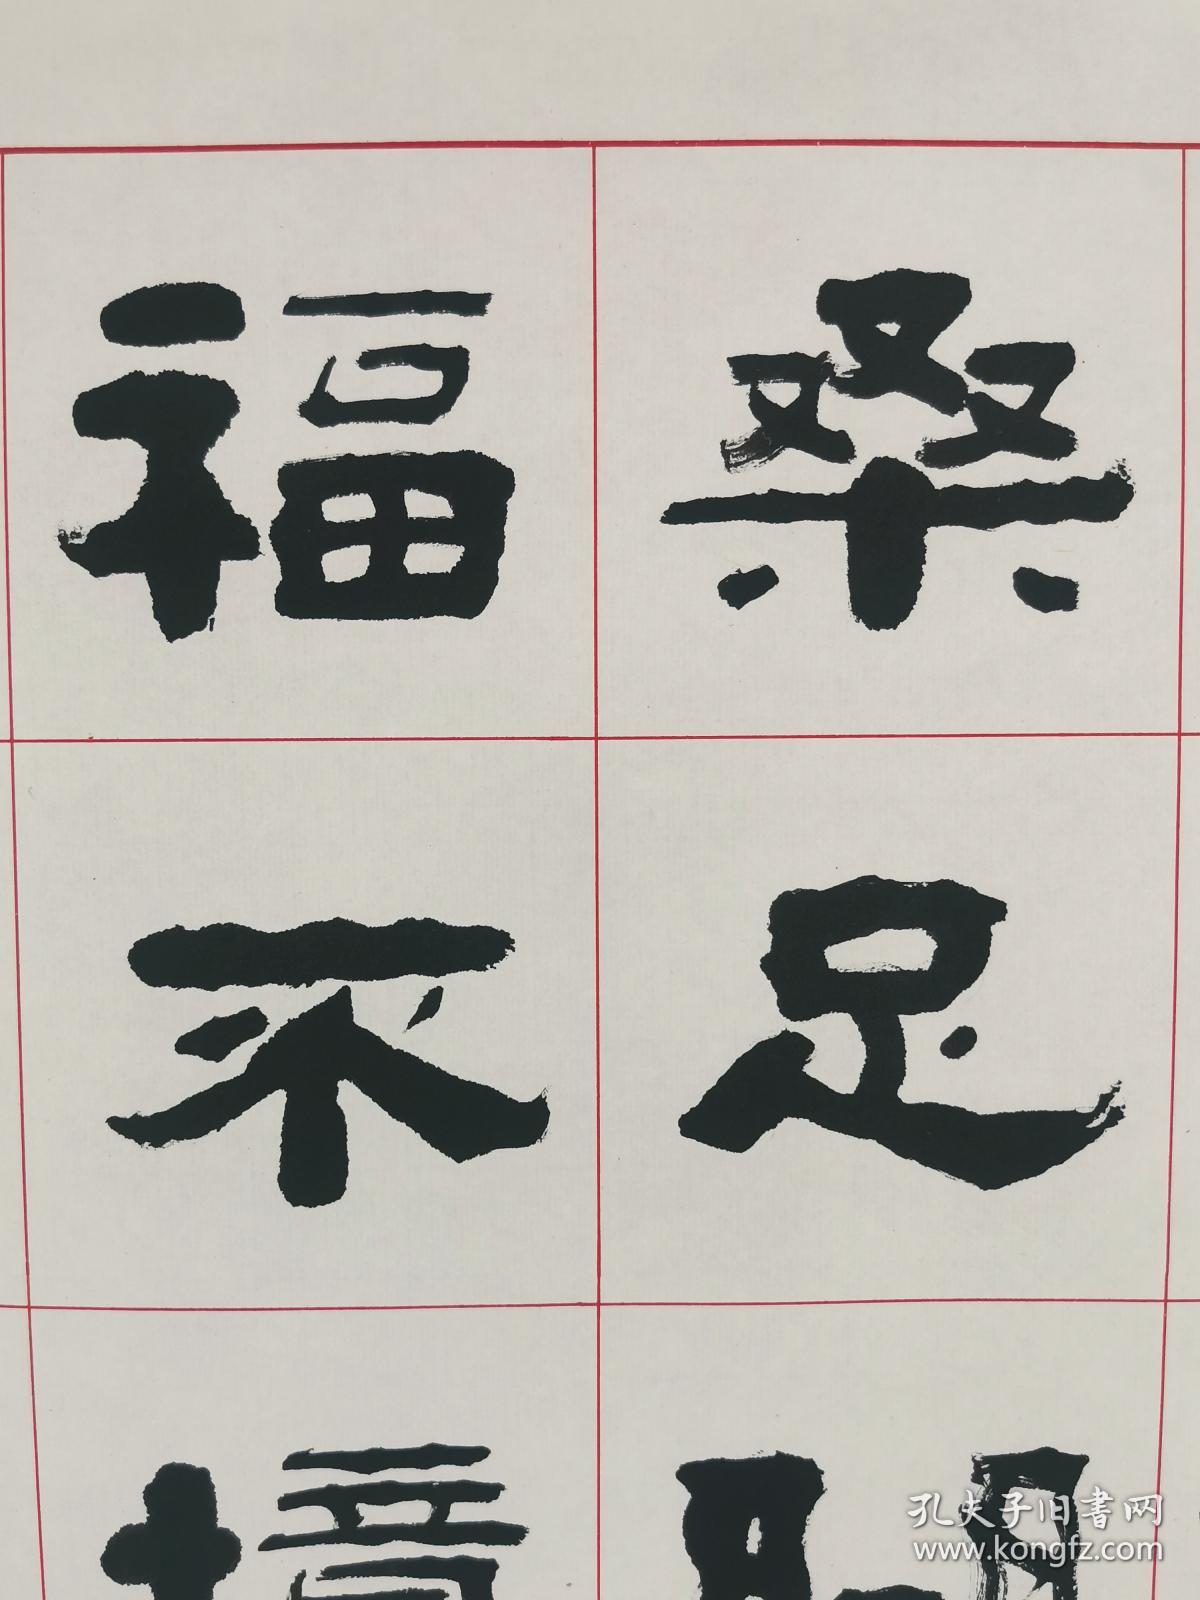 桑足
福不境
孔夫子旧书网
www.kongfz.com